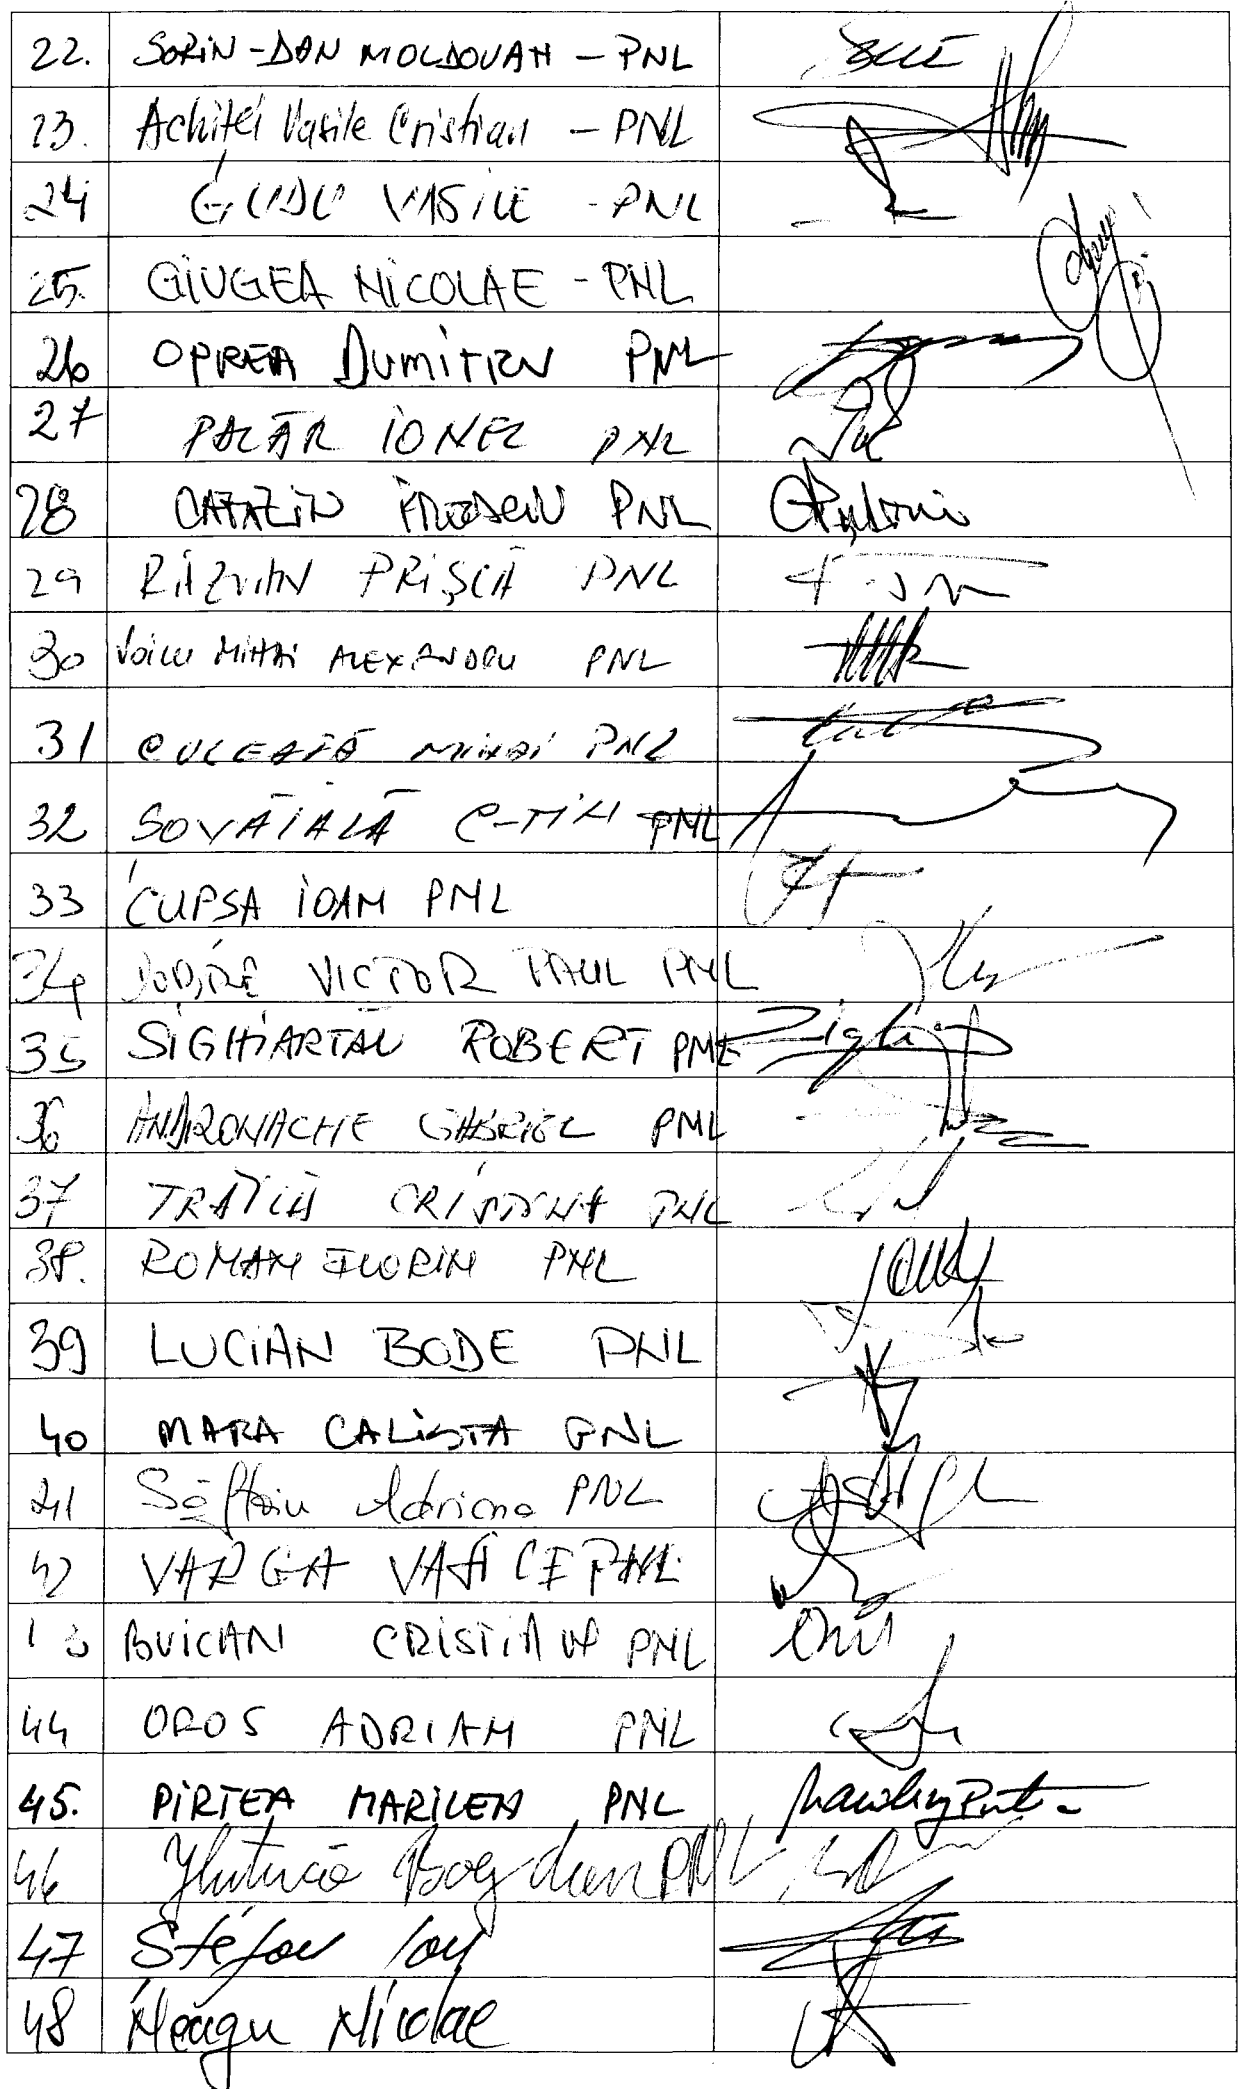 22. SORIN-DAN MOLDOVAN - PNL
23. Achiței Vasile Cristian - PNL
24 GUDU VASILE - PNL
25. GIUGEA NICOLAE - PNL
26 OPREA DUMITRU PNL
27 PALĂR IONEL PNL
28 CATALIN PNL
29 RĂZVAN PRIȘCĂ PNL
30 Voicu MIHAI ALEXANDRU PNL
31 CULEAFĂ MIHAI PNL
32 ȘOVĂIALĂ C-TIN PNL
33 CUPSA IOAN PNL
34 DOBRE VICTOR PAUL PNL
35 SIGHIARTAU ROBERT PNL
36 ANDRONACHE GABRIEL PNL
37 TRĂILĂ CRISTINA PNL
38. ROMAN FLORIN PNL
39 LUCIAN BODE PNL
40 MARA CALISTA PNL
41 Săftoiu Adriana PNL
42 VARGA VASILE PNL
BUICAN CRISTIAN PNL
44 OROS ADRIAN PNL
45. PIRTEA MARILEN PNL
46 Huțucă Bogdan PNL
47 Stefan Ion
48 Neagu Nicolae